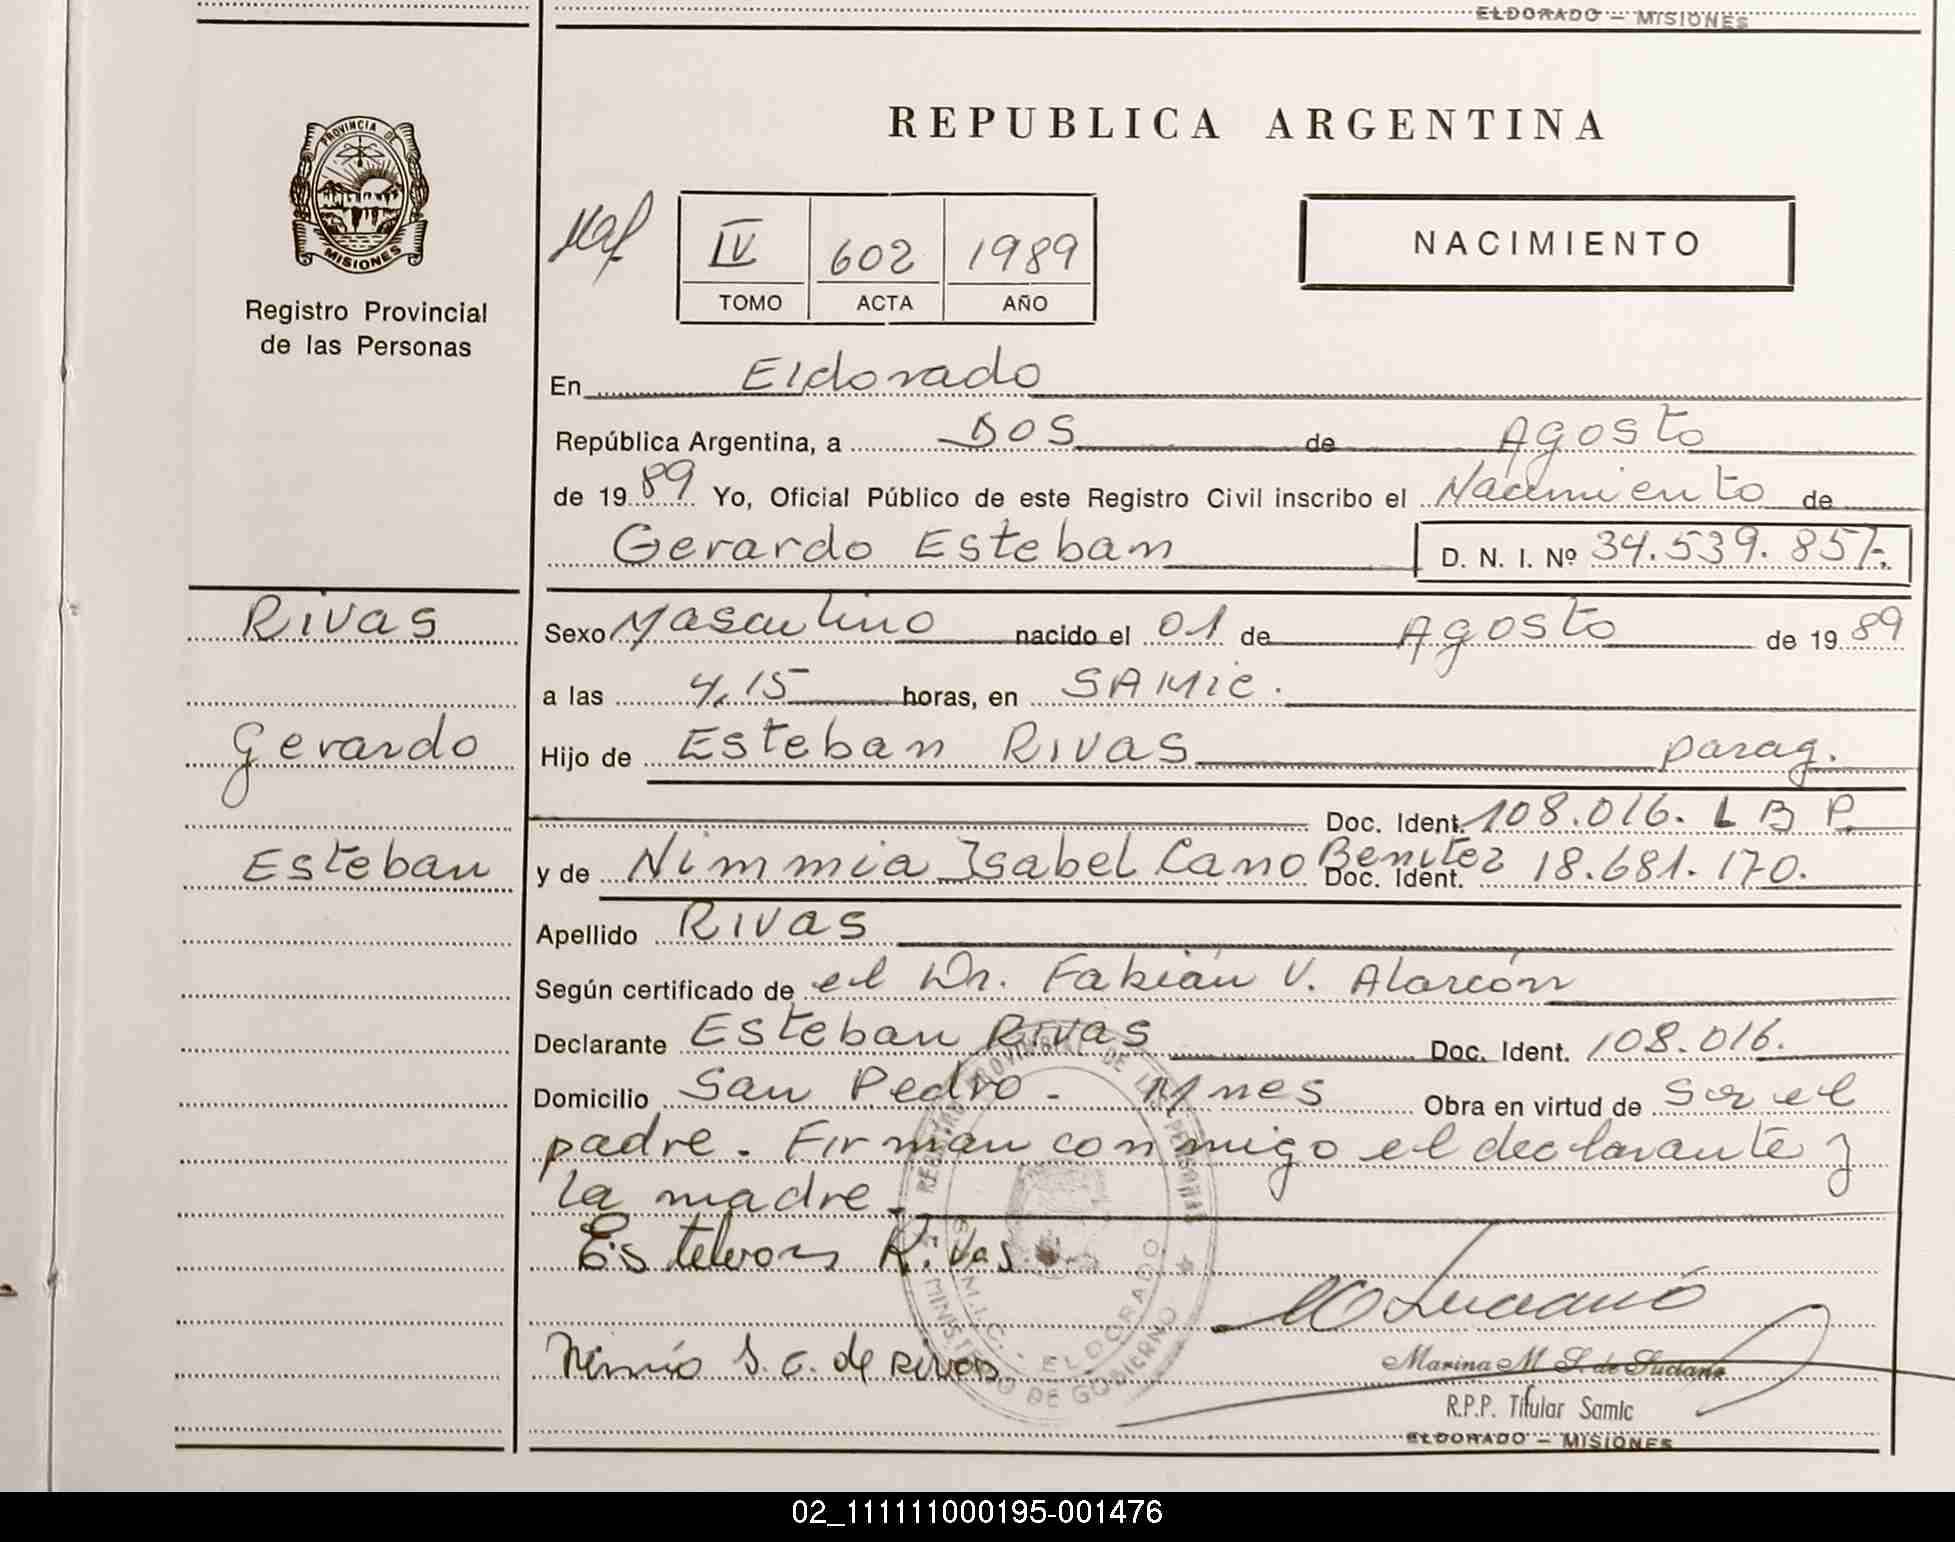 ELDORADO – MISIONES
PROVINCIA DE
MISIONES
Registro Provincial
de las Personas
REPUBLICA ARGENTINA
IV 602 1989
TOMO ACTA AÑO
NACIMIENTO
En Eldorado
República Argentina, a Dos de Agosto
de 1989 Yo, Oficial Público de este Registro Civil inscribo el Nacimiento de
Gerardo Esteban D. N. I. Nº 34.539.857-.
Rivas
Gerardo
Esteban
Sexo Masculino nacido el 01 de Agosto de 1989
a las 4,15 horas, en SAMic.
Hijo de Esteban Rivas parag.
Doc. Ident. 108.016. L B P.
y de Nimmia Isabel Cano Benitez Doc. Ident. 18.681.170.
Apellido Rivas
Según certificado de el Dr. Fabián V. Alarcón
Declarante Esteban Rivas Doc. Ident. 108.016.
Domicilio San Pedro - Mnes Obra en virtud de ser el
padre. Firman conmigo el declarante y
la madre.
Esteban Rivas
REGISTRO PROVINCIAL DE LAS PERSONAS
S.A.M.I.C. - ELDORADO
MINISTERIO DE GOBIERNO
de Rivas
Marina M. S. de Luciano
R.P.P. Titular Samic
ELDORADO – MISIONES
02_111111000195-001476